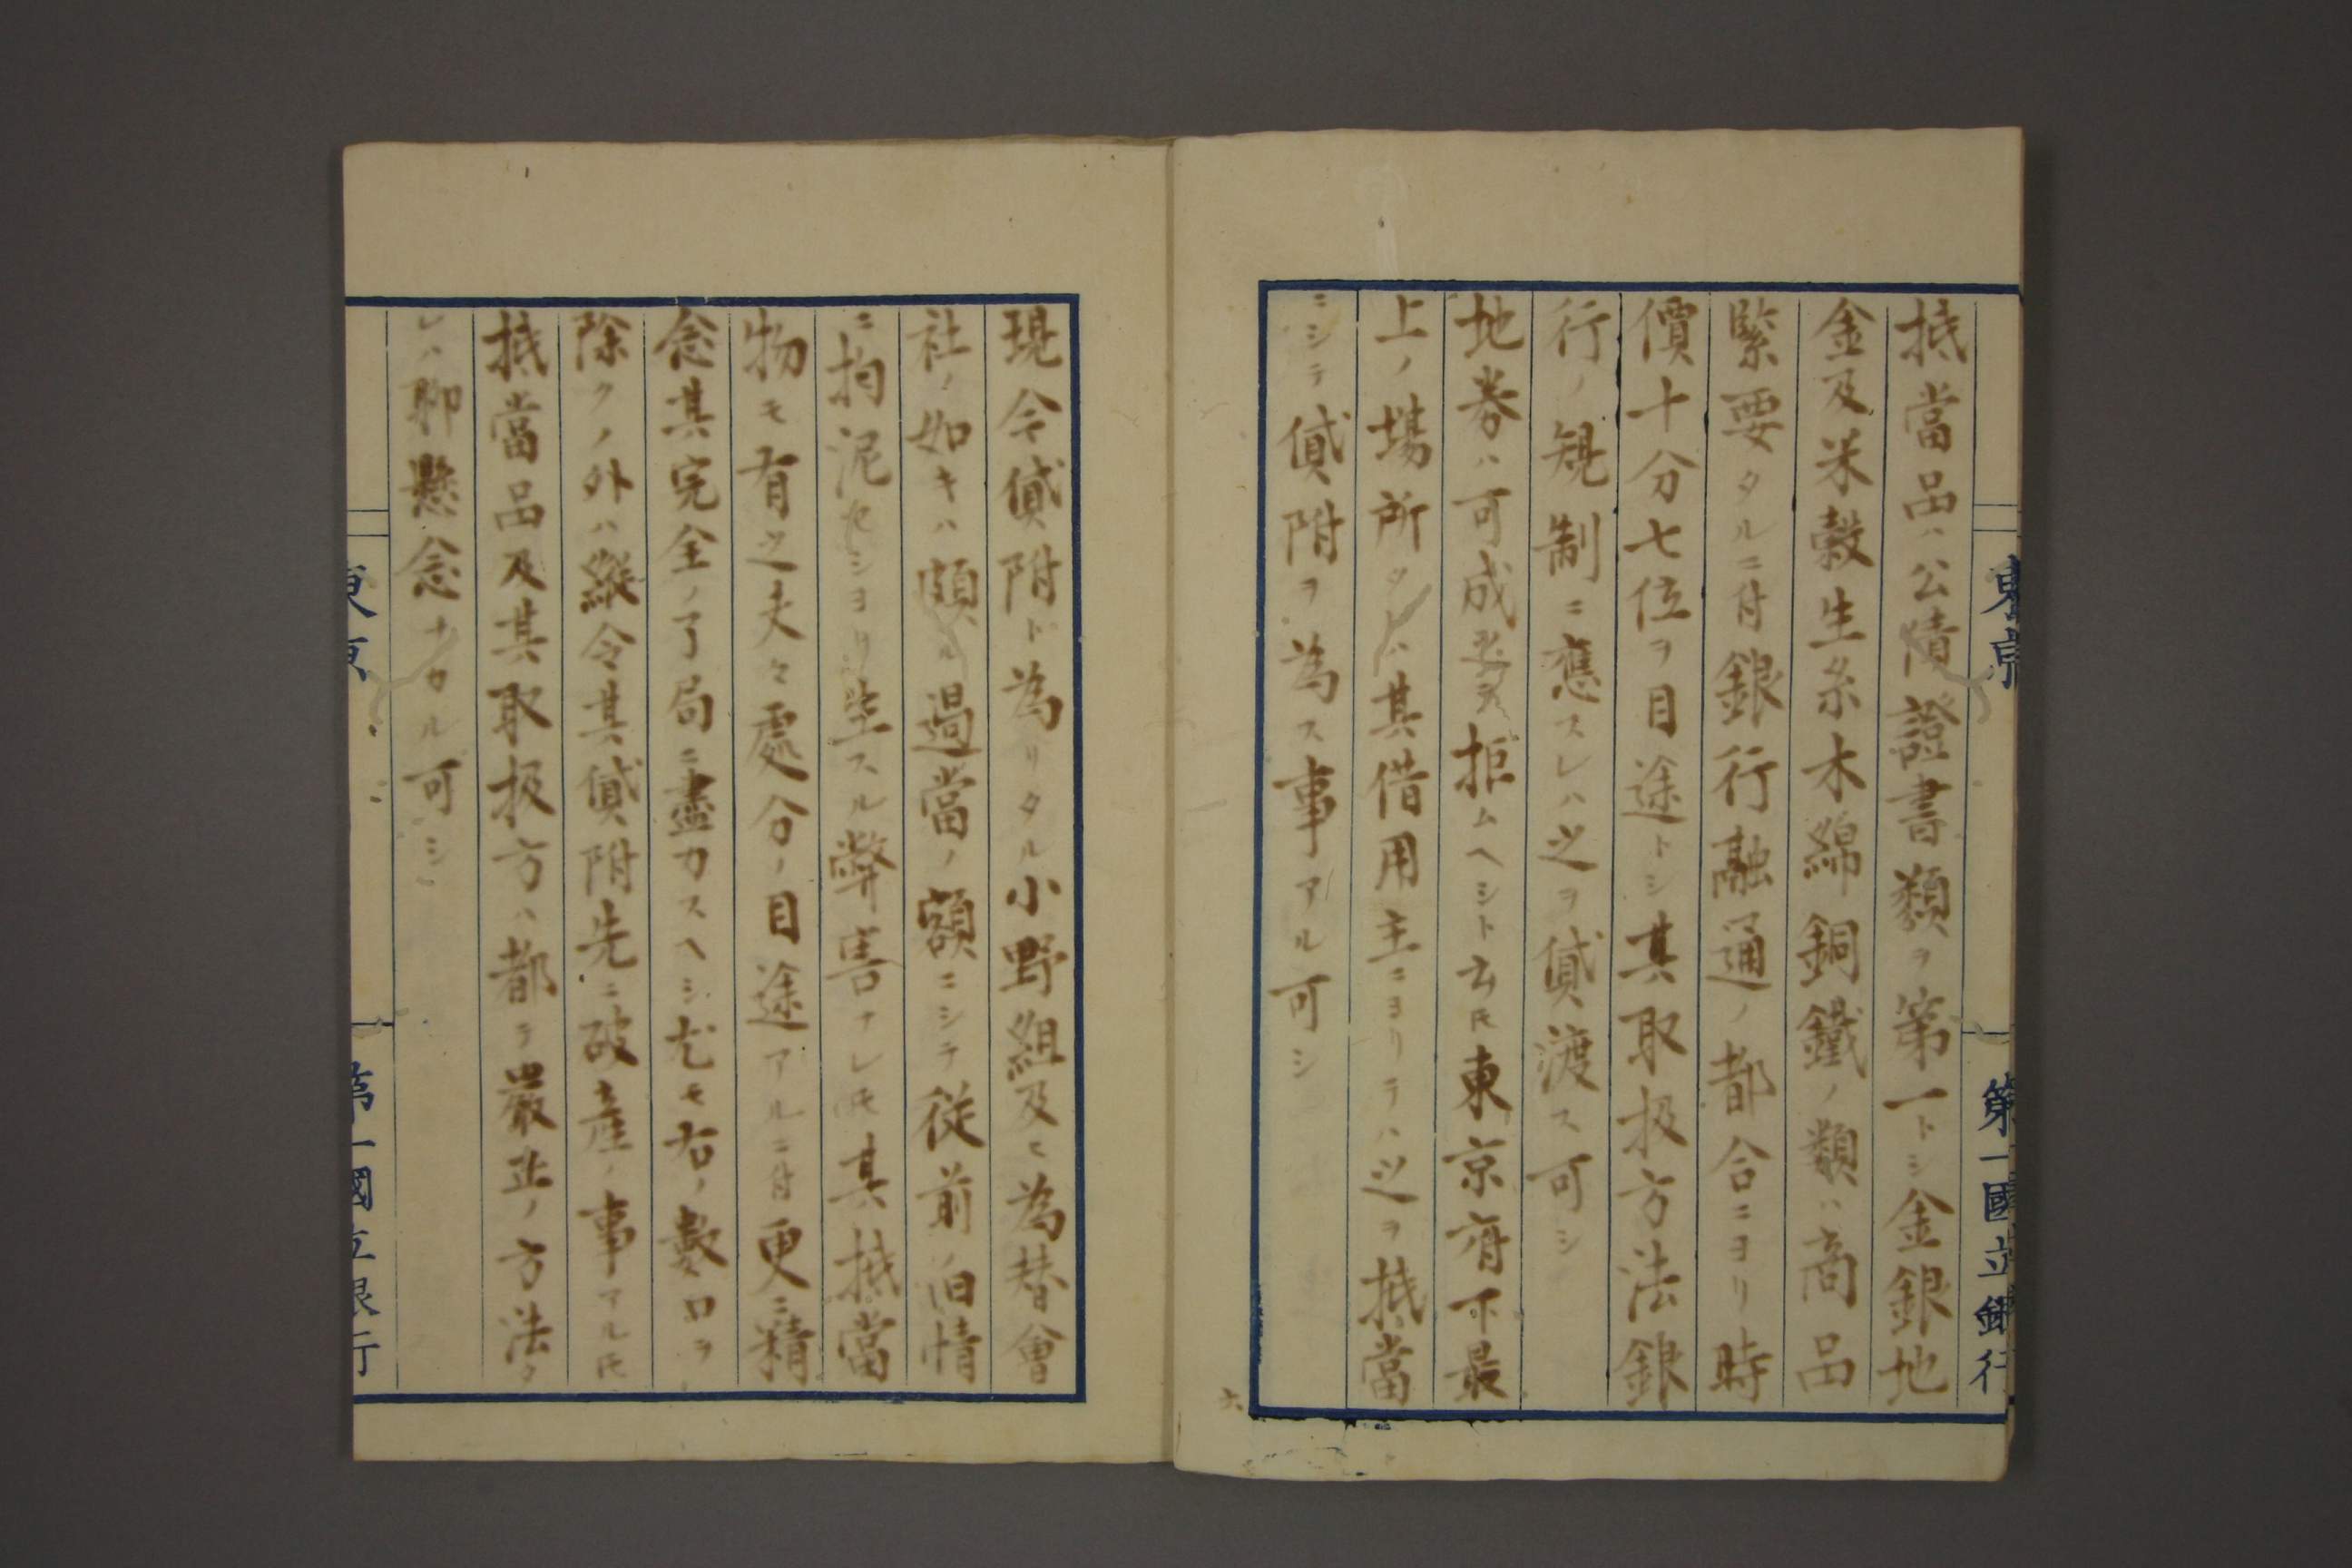 東京 第一國立銀行
抵當品ハ公債證書類ヲ第一トシ金銀地
金及米穀生糸木綿銅鐵ノ類ハ商品
緊要タルニ付銀行融通ノ都合ニヨリ時
價十分七位ヲ目途トシ其取扱方法銀
行ノ規制ニ應スレハ之ヲ貸渡ス可シ
地券ハ可成 拒ムヘシト云𪜈東京府下最
上ノ塲所タレハ其借用主ニヨリテハ之ヲ抵當
ニシテ貸附ヲ為ス事アル可シ
六
現今貸附ト為リタル小野組及ヒ為替會
社ノ如キハ頗ル過當ノ額ニシテ従前ノ旧情
ニ拘泥セシヨリ生スル弊害ナレ𪜈其抵當
物モ有之夫々處分ノ目途アルニ付更ニ精
念其完全ノ了局ニ盡力スヘシ尤モ右ノ數口ヲ
除クノ外ハ縱令其貸附先ニ破産ノ事アル𪜈
抵當品及其取扱方ハ都テ嚴正ノ方法タ
レハ聊懸念ナカル可シ
東京 第一國立銀行